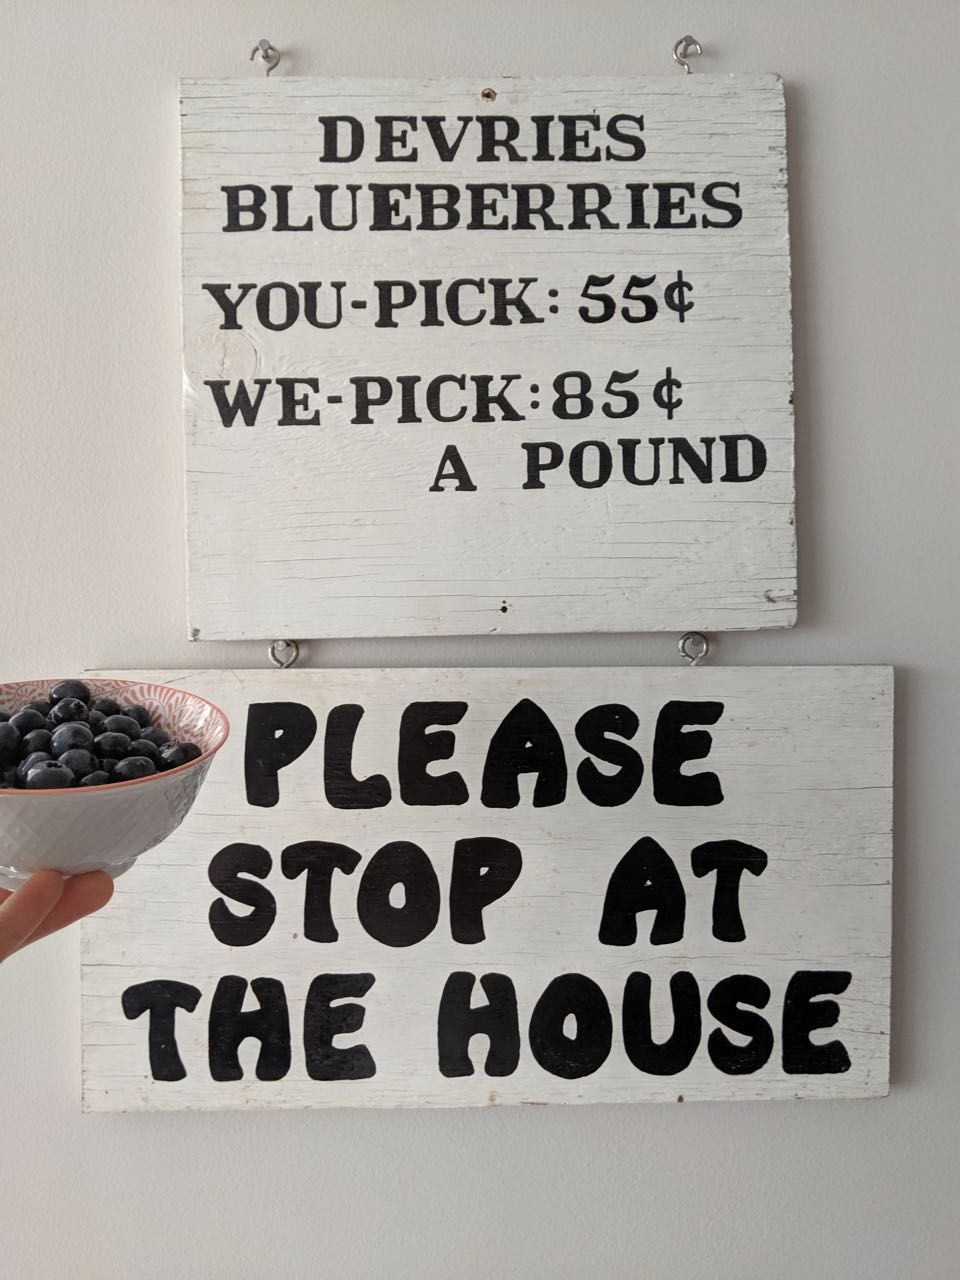 DEVRIES
BLUEBERRIES
YOU-PICK: 55¢
WE-PICK: 85¢
A POUND
PLEASE
STOP AT
THE HOUSE